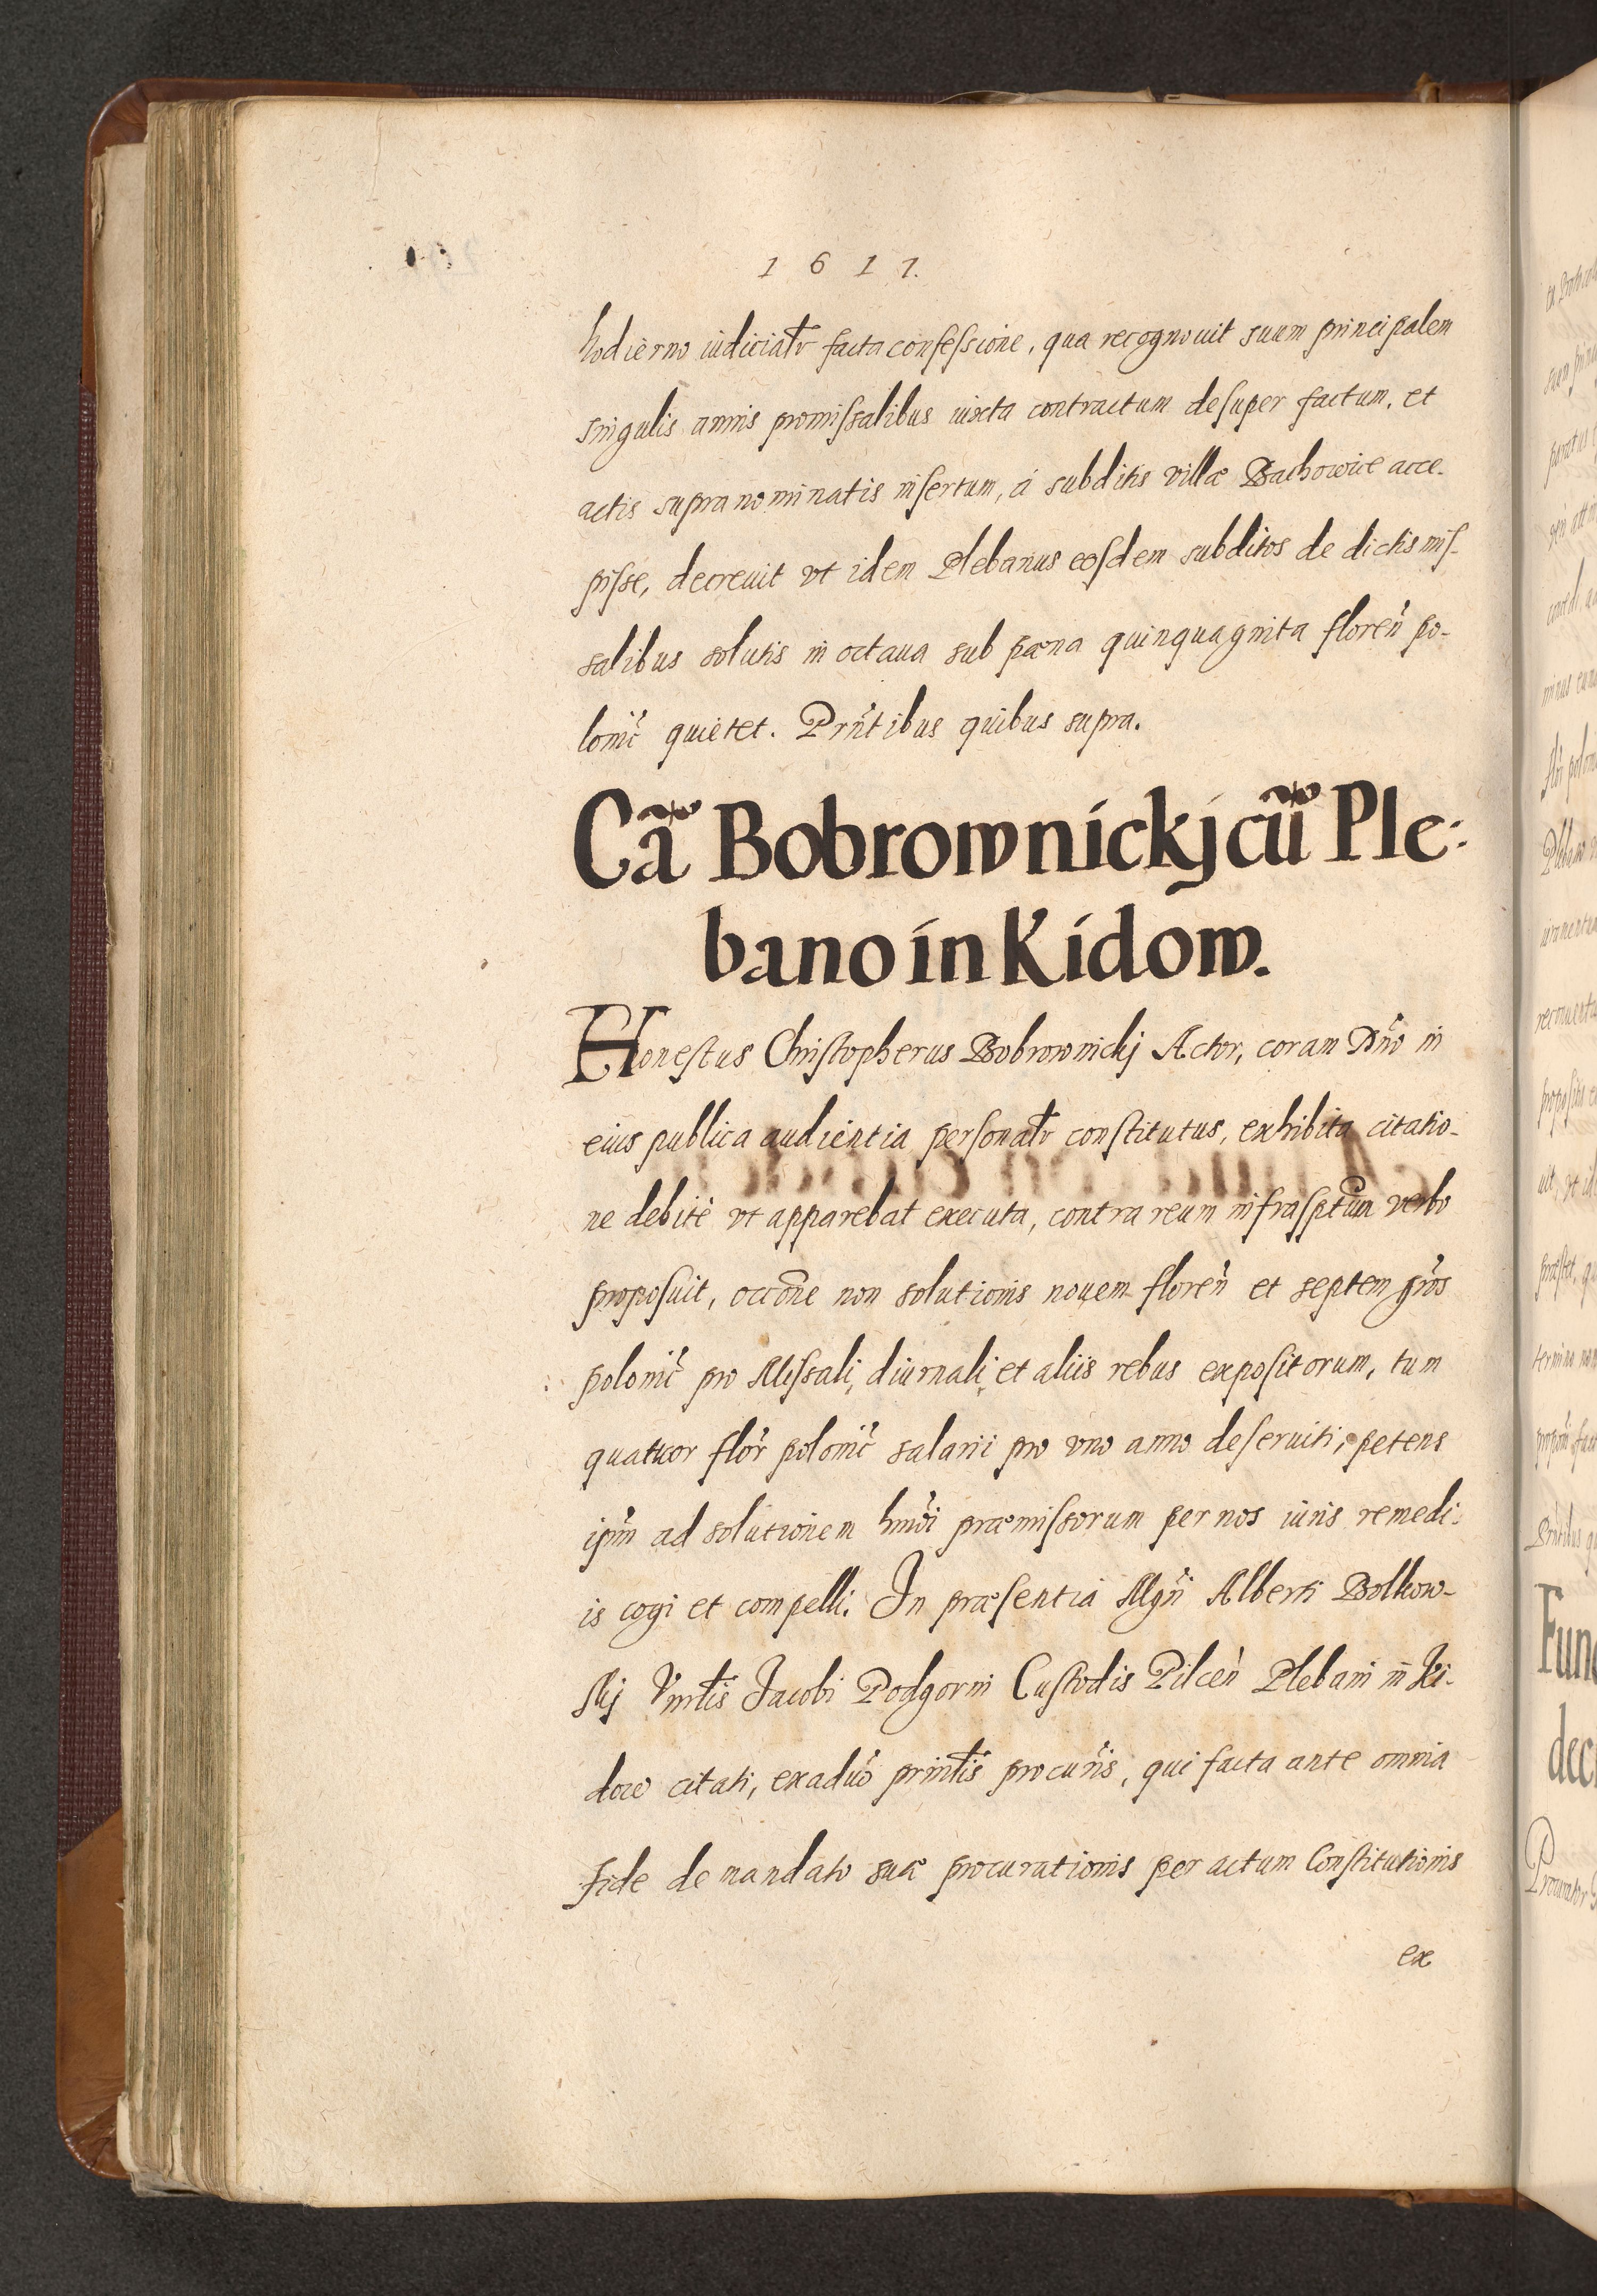 1 6 1 7.
hodierno iudicialr̃ facta confeſsione, qua recognouit suum principalem
singulis annis promiſsalibus iuxta contractum deſuper factum, et
actis supra nominatis inſertum, à subditis villæ Bachowice acce-
piſse, decreuit vt idem Plebanus eoſdem subditos de dictis miſ-
salibus solutis in octaua sub pæna quinquaginta floren̉ po-
lonic̉ quietet. Prñtibus quibus supra.
Cã Bobrownickj cũ Ple:
bano in Kidow.
Honeſtus Chriſtopherus Bobrownickj Actor, coram Dño in
eius publica audientia perſonalr̃ conſtitutus, exhibita citatio-
ne debitè vt apparebat executa, contra reum infraſptum verbo
propoſuit, occõne non solutionis nouem floren̉ et septem gr̉os
polonic̉ pro Miſsali, diurnali, et aliis rebus expoſitorum, tum
quatuor flor̉ polonic̉ salarii pro vno anno deſeruiti, petens
ip̃m ad solutionem hm̉oi præmiſsorum per nos iuris remedi:
is cogi et compelli. In præſentia Mgr̉i Alberti Bolkow-
ſkj Vnr̃lis Jacobi Podgorni Cuſtodis Pilcen̉ Plebani in Ki-
dow citati, ex aduõ prinl̃is procur̉is, qui facta ante omnia
fide de mandato suæ procurationis per actum Conſtitutionis
ex